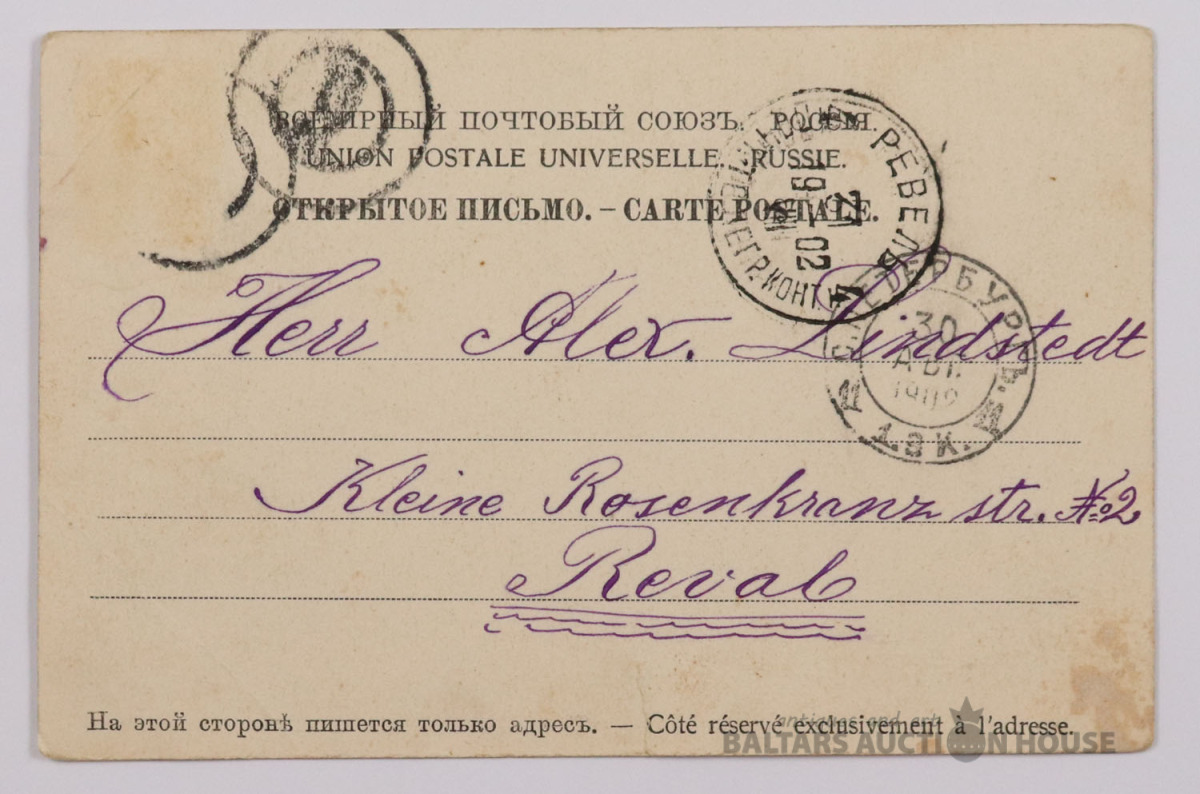 ВСЕМІРНЫЙ ПОЧТОВЫЙ СОЮЗЪ. РОССІЯ.
UNION POSTALE UNIVERSELLE. RUSSIE.
ОТКРЫТОЕ ПИСЬМО. – CARTE POSTALE.
РЕВЕЛЬ
19 02
4
Herr Alex. Lindstedt
С. ПЕТЕРБУРГЪ.
30
АВГ.
1902
1.Э К.
Kleine Rosenkranz str. №2
Reval
На этой сторонѣ пишется только адресъ. — Côté réservé exclusivement à l'adresse.
antiques and art
BALTARS AUCTION HOUSE